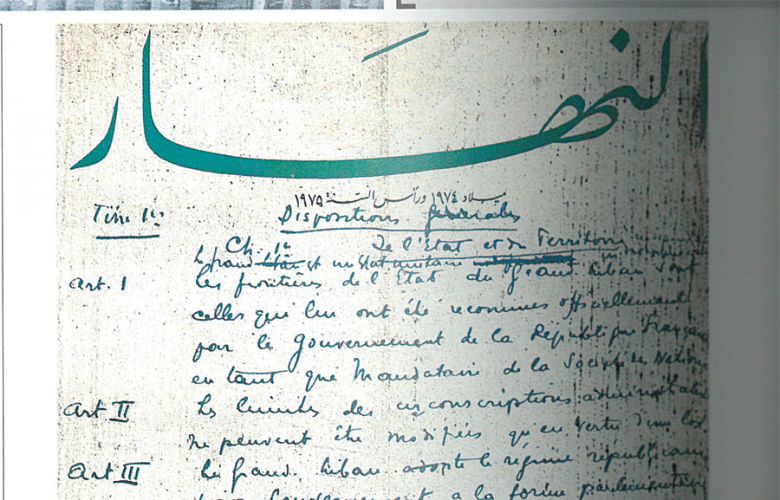 النهار
ميلاد ١٩٧٤ ورأس السنة ١٩٧٥
Titre 1er Dispositions générales
Ch. 1er De l'État et du Territoire
Le Grand Liban est un État unitaire
Art. I Les frontières de l'État du Grand Liban sont
celles qui lui ont été reconnues officiellement
par le Gouvernement de la République Française
en tant que Mandataire de la Société des Nations
Art II Les limites des circonscriptions administratives
ne peuvent être modifiées qu'en vertu d'une loi
Art III Le Grand Liban adopte le régime républicain
Gouvernement a la forme parlementaire